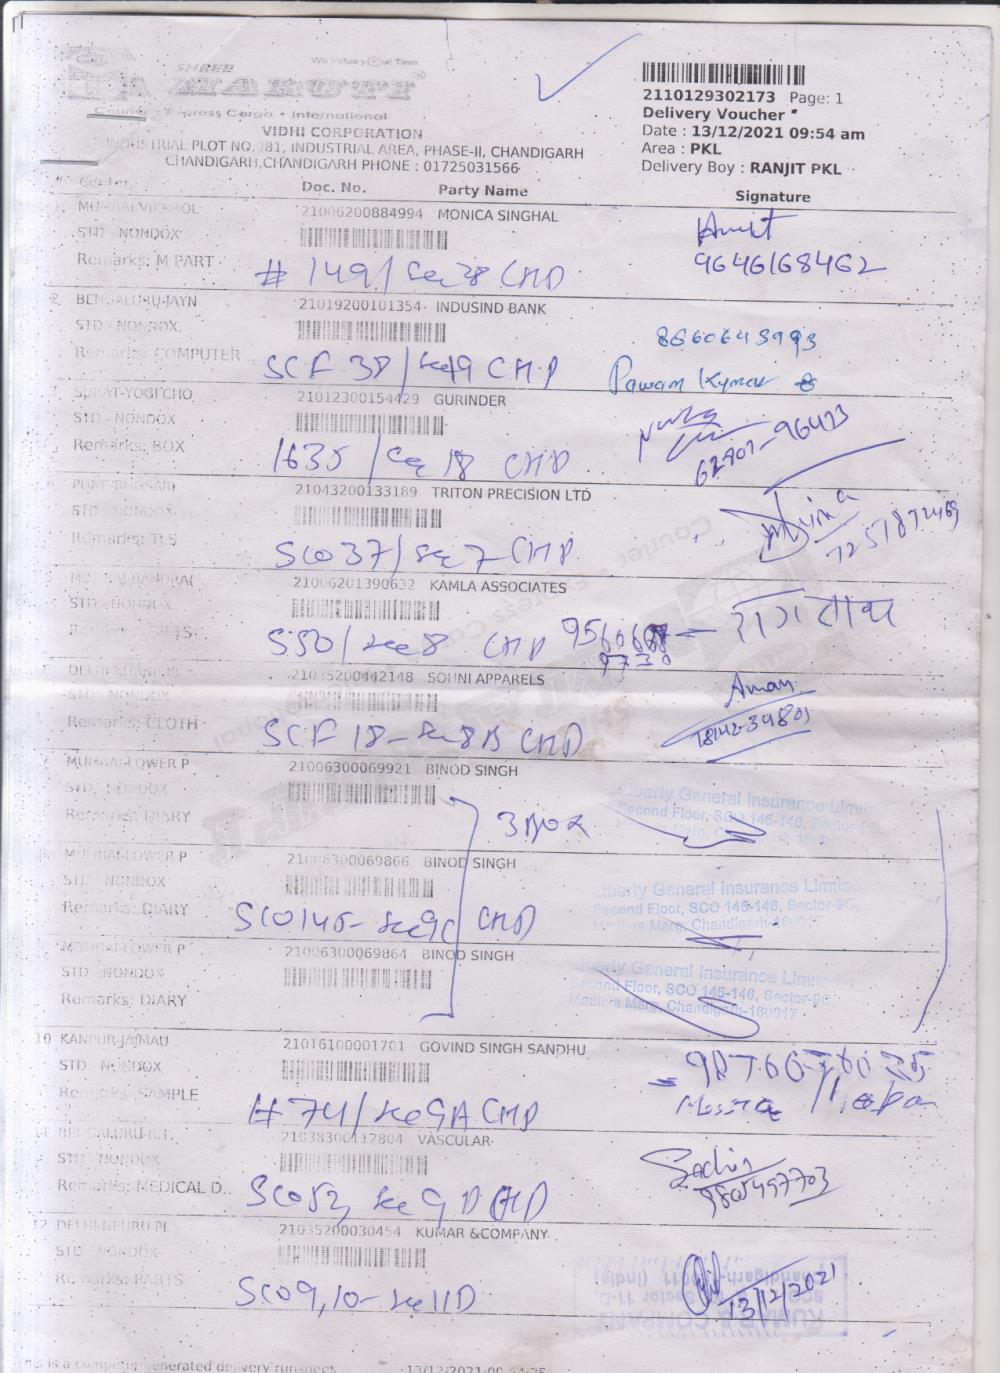 SHREE
MARUTI
Courier • Express Cargo • International
VIDHI CORPORATION
INDUSTRIAL PLOT NO.181, INDUSTRIAL AREA, PHASE-II, CHANDIGARH
CHANDIGARH,CHANDIGARH PHONE : 01725031566
2110129302173 Page: 1
Delivery Voucher *
Date : 13/12/2021 09:54 am
Area : PKL
Delivery Boy : RANJIT PKL
# Center Doc. No. Party Name Signature
21006200884994 MONICA SINGHAL
STD - NONDOX
Remarks: M PART
# 149/ Sec 28 CHD
9646168462
2 BENGALURU-JAYN 21019200101354 INDUSIND BANK
STD - NONDOX
Remarks: COMPUTER ..
SCF 38/ Sec 19 CHD
Pawan Kumar
SURAT-YOGI CHO 21012300154429 GURINDER
STD - NONDOX
Remarks: BOX
1635 / Sec 18 CHD
62807-96423
21043200133189 TRITON PRECISION LTD
STD - NONDOX
Remarks: TLS
SCO 37/ Sec 7 CHD
21006201390632 KAMLA ASSOCIATES
STD - NONDOX
550/ Sec 8 CHD
21035200442148 SOHNI APPARELS
STD - NONDOX
Remarks: CLOTH
SCF 18 - Sec 8B CHD
Aman
78142-39801
7 MUMBAI-LOWER P 21006300069921 BINOD SINGH
STD - NONDOX
Remarks: DIARY
3 Box
Liberty General Insurance Limited
Second Floor, SCO 145-146, Sector-9C,
Madhya Marg, Chandigarh-160017
MUMBAI-LOWER P 21006300069866 BINOD SINGH
STD - NONDOX
Remarks: DIARY
SCO 145 - Sec 9C CHD
Liberty General Insurance Limited
Second Floor, SCO 145-146, Sector-9C,
Madhya Marg, Chandigarh-160017
MUMBAI-LOWER P 21006300069864 BINOD SINGH
STD - NONDOX
Remarks: DIARY
Liberty General Insurance Limited
Second Floor, SCO 145-146, Sector-9C,
Madhya Marg, Chandigarh-160017
10 KANPUR-JAJMAU 21016100001701 GOVIND SINGH SANDHU
STD - NONDOX
Remarks: SAMPLE
# 74/ Sec 9A CHD
11 21038300112804 VASCULAR
STD - NONDOX
Remarks: MEDICAL D..
SCO 52, Sec 9D CHD
Sachin
9805497703
12 21035200030454 KUMAR &COMPANY
STD - NONDOX
Remarks: PARTS
SCO 9,10 - Sec 11D
13/12/2021
KUMAR & COMPANY
This is a computer generated delivery runsheet